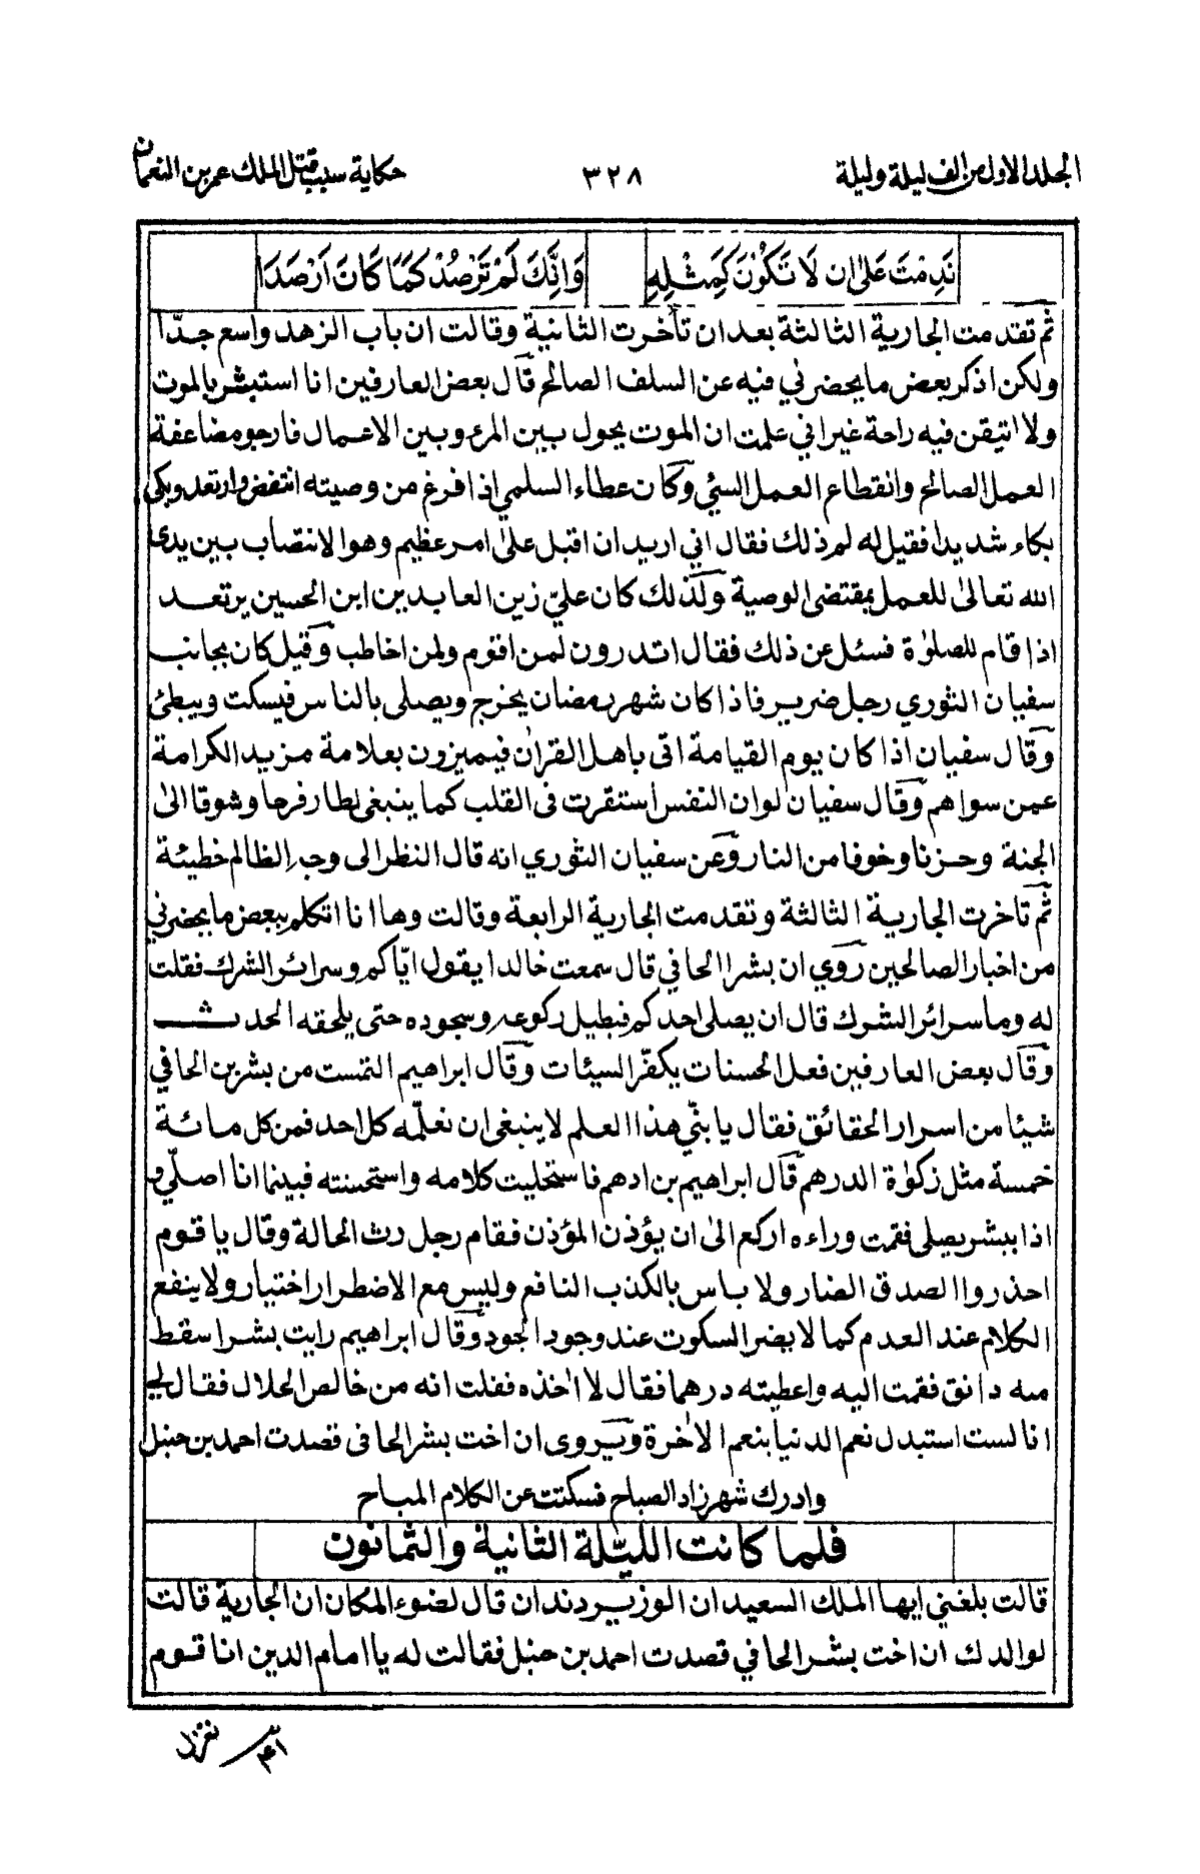 الجلد الاول من الف ليلة وليلة ٣٢٨ حكاية سبب قتل الملك عمر بن النعمان
نَدِمْتَ عَلىٰ ان لَا تَكُوْنَ كَمِثْلِهِ وَاِنَّكَ لَمْ تَرْصُدْ كَمَا كَانَ اَرْصَدَا
ثم تقدمت الجارية الثالثة بعد ان تأخرت الثانية وقالت ان باب الزهد واسع جدّا
ولكن اذكر بعض ما يحضرني فيه عن السلف الصالح قال بعض العارفين انا استبشر بالموت
ولا اتيقن فيه راحة غير اني علمت ان الموت يحول بين المرء وبين الاعمال فارجو مضاعفة
العمل الصالح وانقطاع العمل السيّ وكان عطاء السلمي اذا فرغ من وصيته انتفض وارتعد وبكى
بكاء شديدا فقيل له لم ذلك فقال اني اريد ان اقبل علىٰ امر عظيم وهو الانتصاب بين يدى
الله تعالىٰ للعمل بمقتضى الوصية ولذلك كان عليّ زين العابدين ابن الحسين يرتعد
اذا قام للصلوٰة فسئل عن ذلك فقال اتدرون لمن اقوم ولمن اخاطب وقيل كان بجانب
سفيان الثوري رجل ضرير فاذا كان شهر رمضان يخرج ويصلى بالناس فيسكت ويبطئ
وقال سفيان اذا كان يوم القيامة اتى باهل القرآن فيميزون بعلامة مزيد الكرامة
عمن سواهم وقال سفيان لو ان النفس استقرت فى القلب كما ينبغى لطار فرحا وشوقا الىٰ
الجنة وحزنا وخوفا من النار وعن سفيان الثوري انه قال النظر الى وجه الظالم خطيئة
ثم تاخرت الجارية الثالثة وتقدمت الجارية الرابعة وقالت وها انا اتكلم ببعض ما يحضرني
من اخبار الصالحين روي ان بشرا الحافي قال سمعت خالدا يقول ايّاكم وسرائر الشرك فقلت
له وما سرائر الشرك قال ان يصلى احدكم فيطيل ركوعه وسجوده حتى يلحقه الحدث
وقال بعض العارفين فعل الحسنات يكفّر السيئات وقال ابراهيم التمست من بشر بن الحافي
شيئا من اسرار الحقائق فقال يا بنّي هذا العلم لا ينبغى ان نعلّمه كل احد فمن كل مائة
خمسة مثل زكوٰة الدرهم قال ابراهيم بن ادهم فاستحليت كلامه واستحسنته فبينما انا اصلّي و
اذا ببشر يصلى فقمت وراءه اركع الىٰ ان يؤذن المؤذن فقام رجل رث الحالة وقال يا قوم
احذروا الصدق الضار ولا باس بالكذب النافع وليس مع الاضطرار اختيار ولا ينفع
الكلام عند العدم كما لا يضر السكوت عند وجود الجود وقال ابراهيم رايت بشرا سقط
منه دانق فقمت اليه واعطيته درهما فقال لا اخذه فقلت انه من خالص الحلال فقال لي
انا لست استبدل نعم الدنيا بنعم الاخرة ويروى ان اخت بشر الحافى قصدت احمد بن حنبل
وادرك شهرزاد الصباح فسكتت عن الكلام المباح
فلما كانت الليلة الثانية والثمانون
قالت بلغني ايها الملك السعيد ان الوزير دندان قال لضوء المكان ان الجارية قالت
لوالدك ان اخت بشر الحافي قصدت احمد بن حنبل فقالت له يا امام الدين انا قوم
نغزل